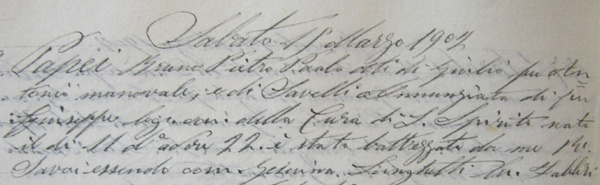 Sabato 15 Marzo 1902
Papei Bruno Pietro Paolo di Giulio fu An
tonio manovale, e di Savelli Annunziata di fu
Giuseppe leg. con. della Cura di S. Spirito nato
il dì 11 do ore 22. è stato battezzato da me
Savoi essendo com. Gesuina